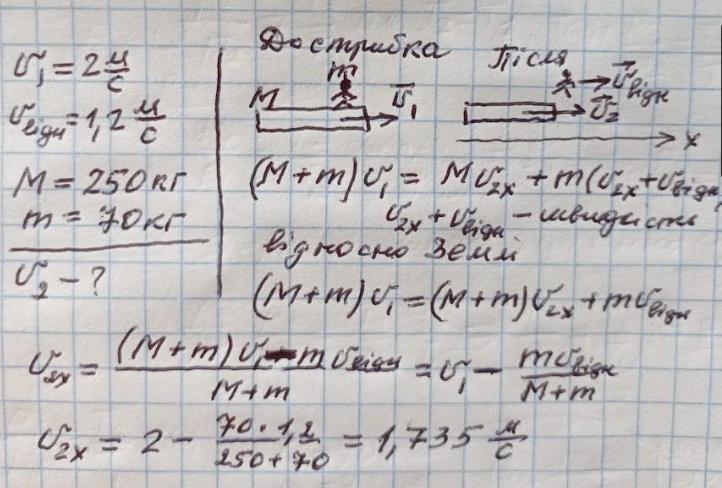 υ₁ = 2 м/с
υвідн = 1,2 м/с
M = 250 кг
m = 70 кг
υ₂ - ?
До стрибка
m
M
υ⃗₁
Після
υ⃗відн
υ⃗₂
x
(M+m)υ₁ = Mυ₂ₓ + m(υ₂ₓ+υвідн)
υ₂ₓ + υвідн - швидкість
відносно Землі
(M+m)υ₁ = (M+m)υ₂ₓ + mυвідн
υ₂ₓ = ((M+m)υ₁ - mυвідн)/(M+m) = υ₁ - mυвідн/(M+m)
υ₂ₓ = 2 - (70·1,2)/(250+70) = 1,735 м/с